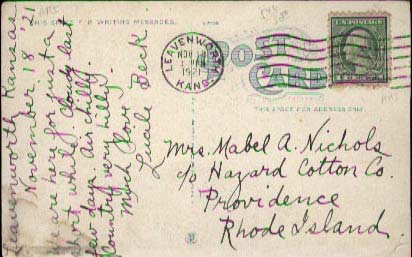 THIS SPACE FOR WRITING MESSAGES.
POST
CARD
THIS SPACE FOR ADDRESS ONLY.
LEAVENWORTH
NOV 18
1921
KANS.
Leavenworth Kansas
November 18 '21
We are here for just a
short while. Cloudy last
few days. Air chilly.
Country very hilly.
Much love
Luale Beck
Mrs. Mabel A. Nichols
c/o Hazard Cotton Co.
Providence
Rhode Island.